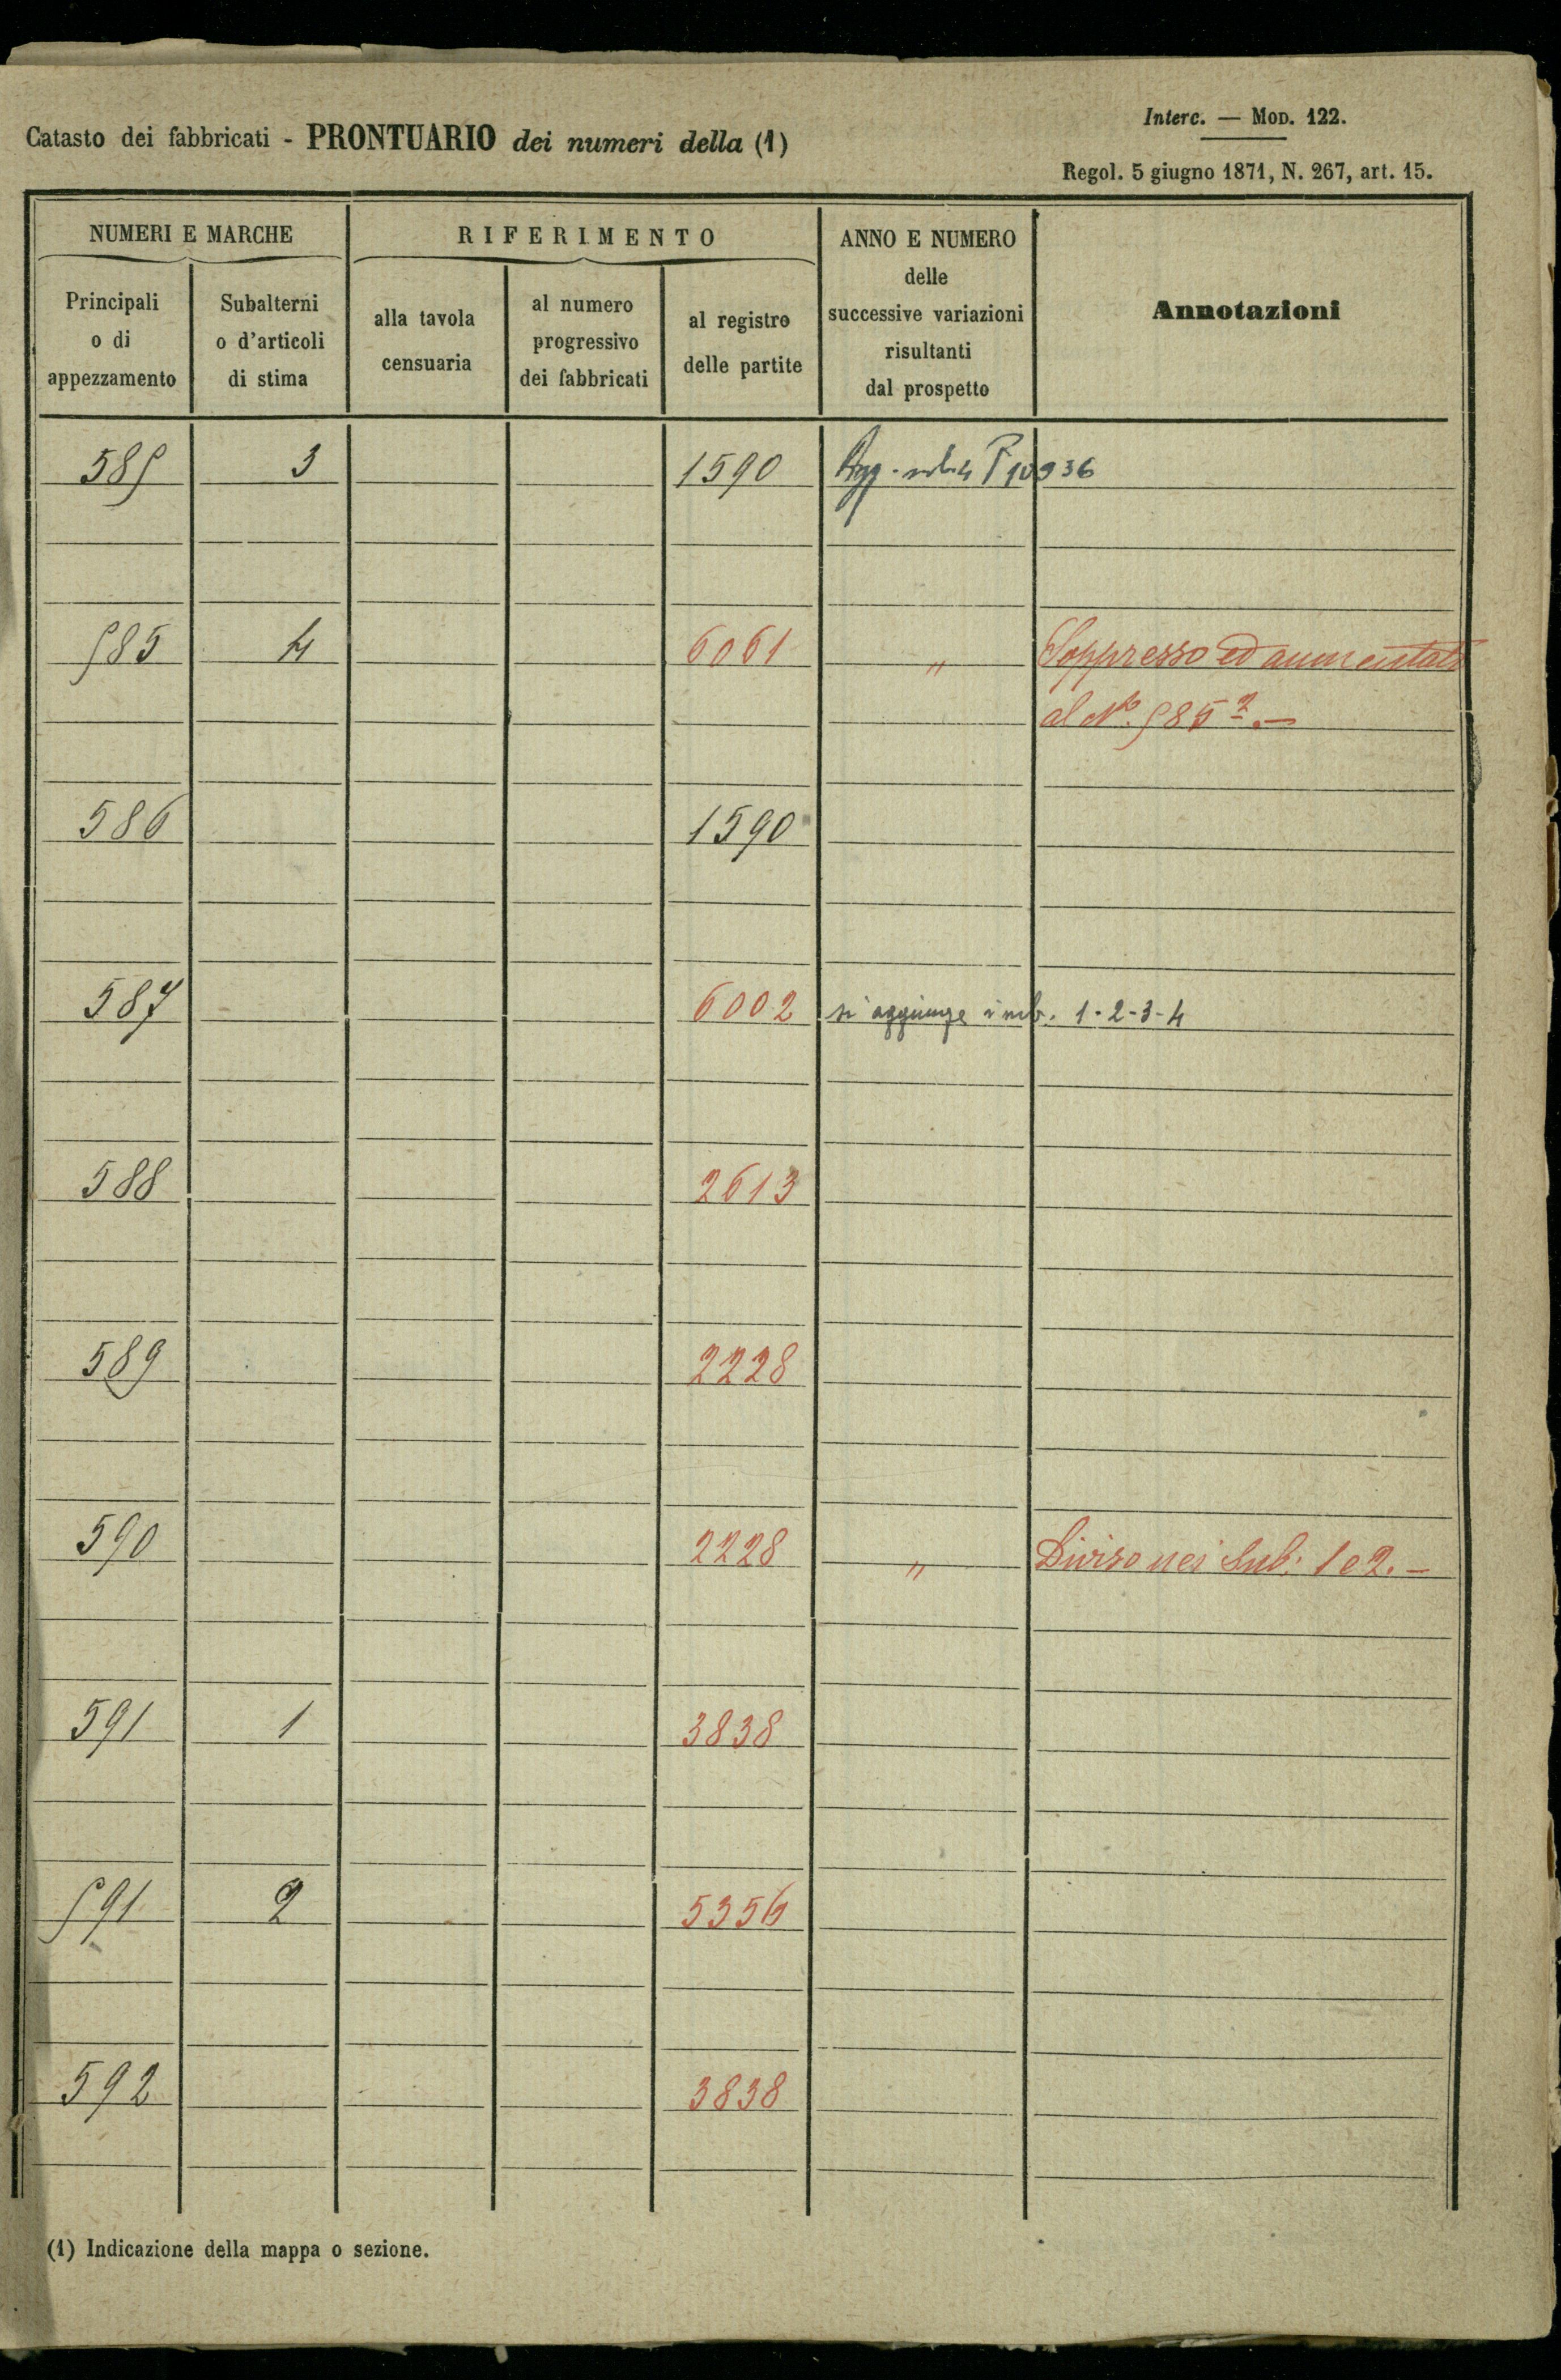 Catasto dei fabbricati - PRONTUARIO dei numeri della (1)
Interc. — Mod. 122.
Regol. 5 giugno 1871, N. 267, art. 15.
NUMERI E MARCHE
RIFERIMENTO
ANNO E NUMERO
delle
successive variazioni
risultanti
dal prospetto
Annotazioni
Principali
o di
appezzamento
Subalterni
o d'articoli
di stima
alla tavola
censuaria
al numero
progressivo
dei fabbricati
al registro
delle partite
585 3 1590 Agg. sub. 4 P 10936
585 4 6061 " Soppresso ed aumentato
al No. 585 2. —
586 1590
587 6002 si aggiunge i sub. 1-2-3-4
588 2613
589 2228
590 2228 " Diviso nei Sub: 1 e 2. —
591 1 3838
591 2 5356
592 3838
(1) Indicazione della mappa o sezione.